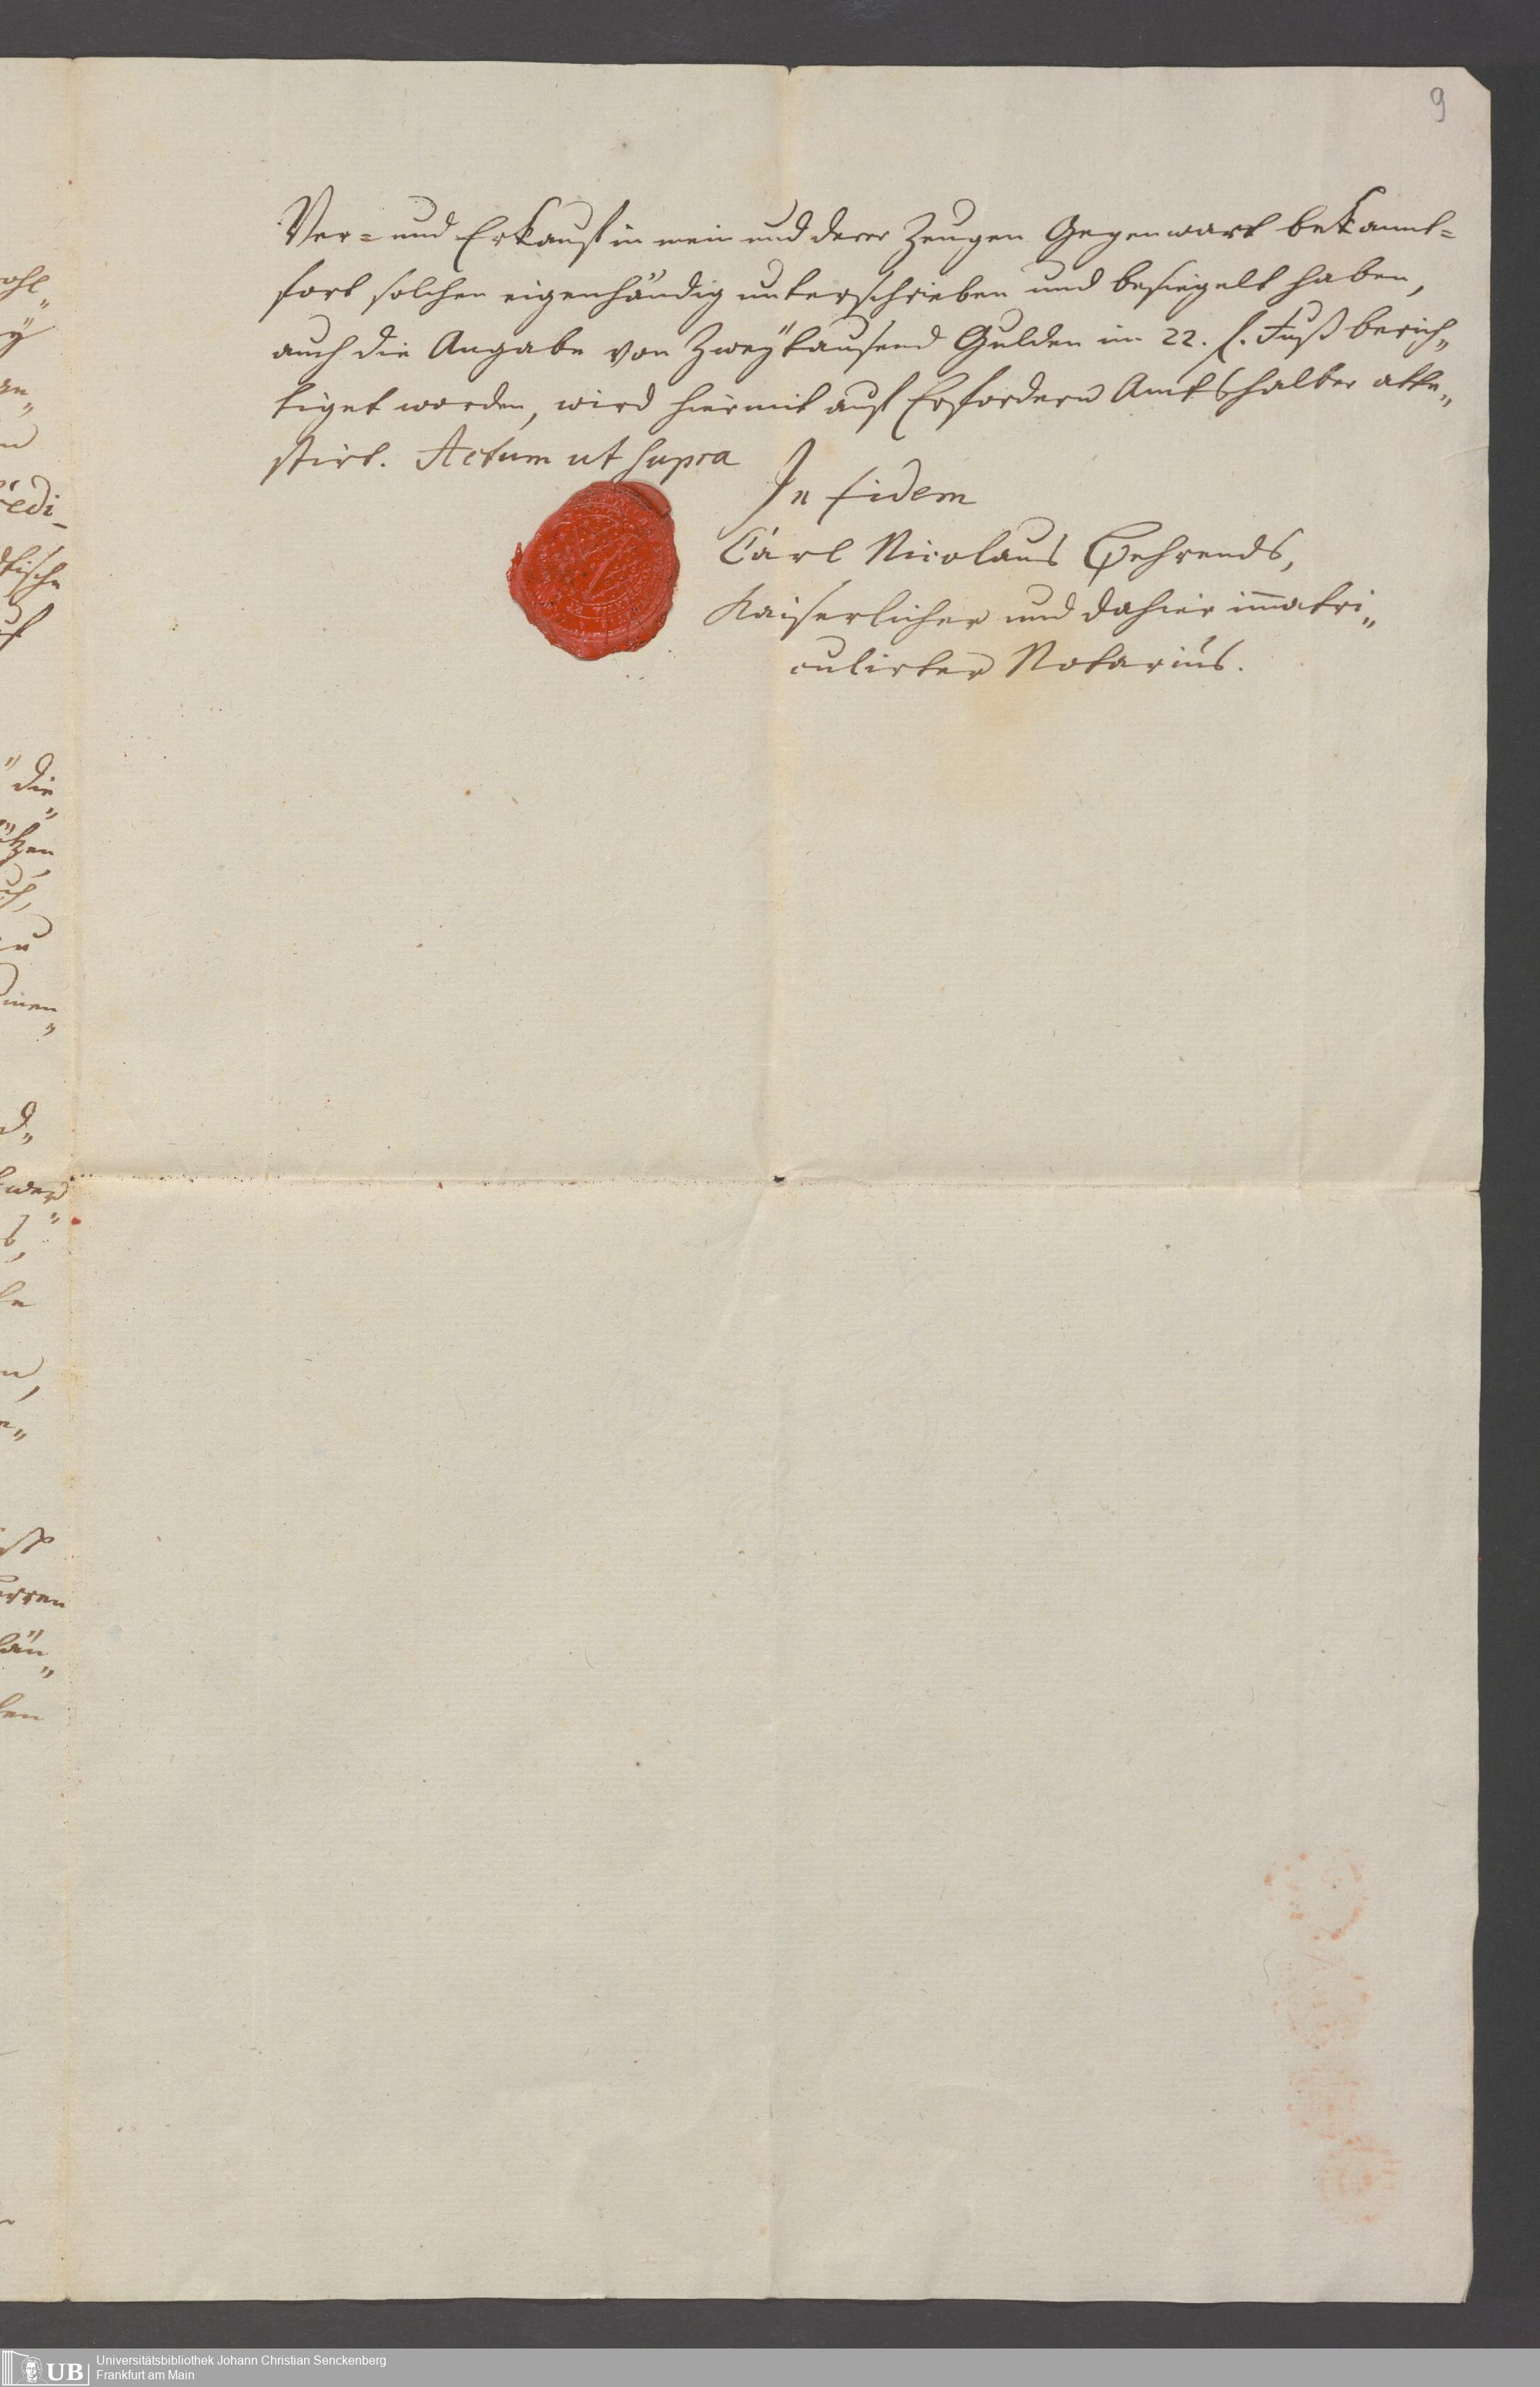 9
Ver= und Erkauf in mein und derer Zeugen Gegenwart bekannt=
fort solchen eigenhändig unterschrieben und besiegelt haben,
auch die Angabe von Zweÿtausend Gulden im 22. f. Fuß berich„
tiget worden, wird hiermit auf Erfordern Amtshalber atte„
stirt. Actum ut supra
In fidem
Carl Nicolaus Behrends,
Kaiserlicher und dahier immatri„
culirter Notarius.
ohl„
ÿ
edi_
tische
die„
ätzen
inen„
wer„
erren
län„
ten
UB Universitätsbibliothek Johann Christian Senckenberg
Frankfurt am Main